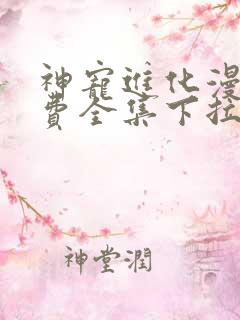 神寵進化漫
費全集下拉
神堂潤